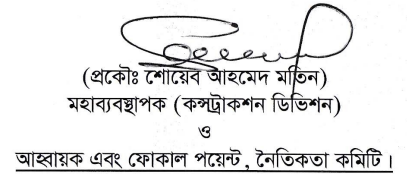 (প্রকৌঃ শোয়েব আহমেদ মতিন)
মহাব্যবস্থাপক (কন্সট্রাকশন ডিভিশন)
ও
আহ্বায়ক এবং ফোকাল পয়েন্ট, নৈতিকতা কমিটি।